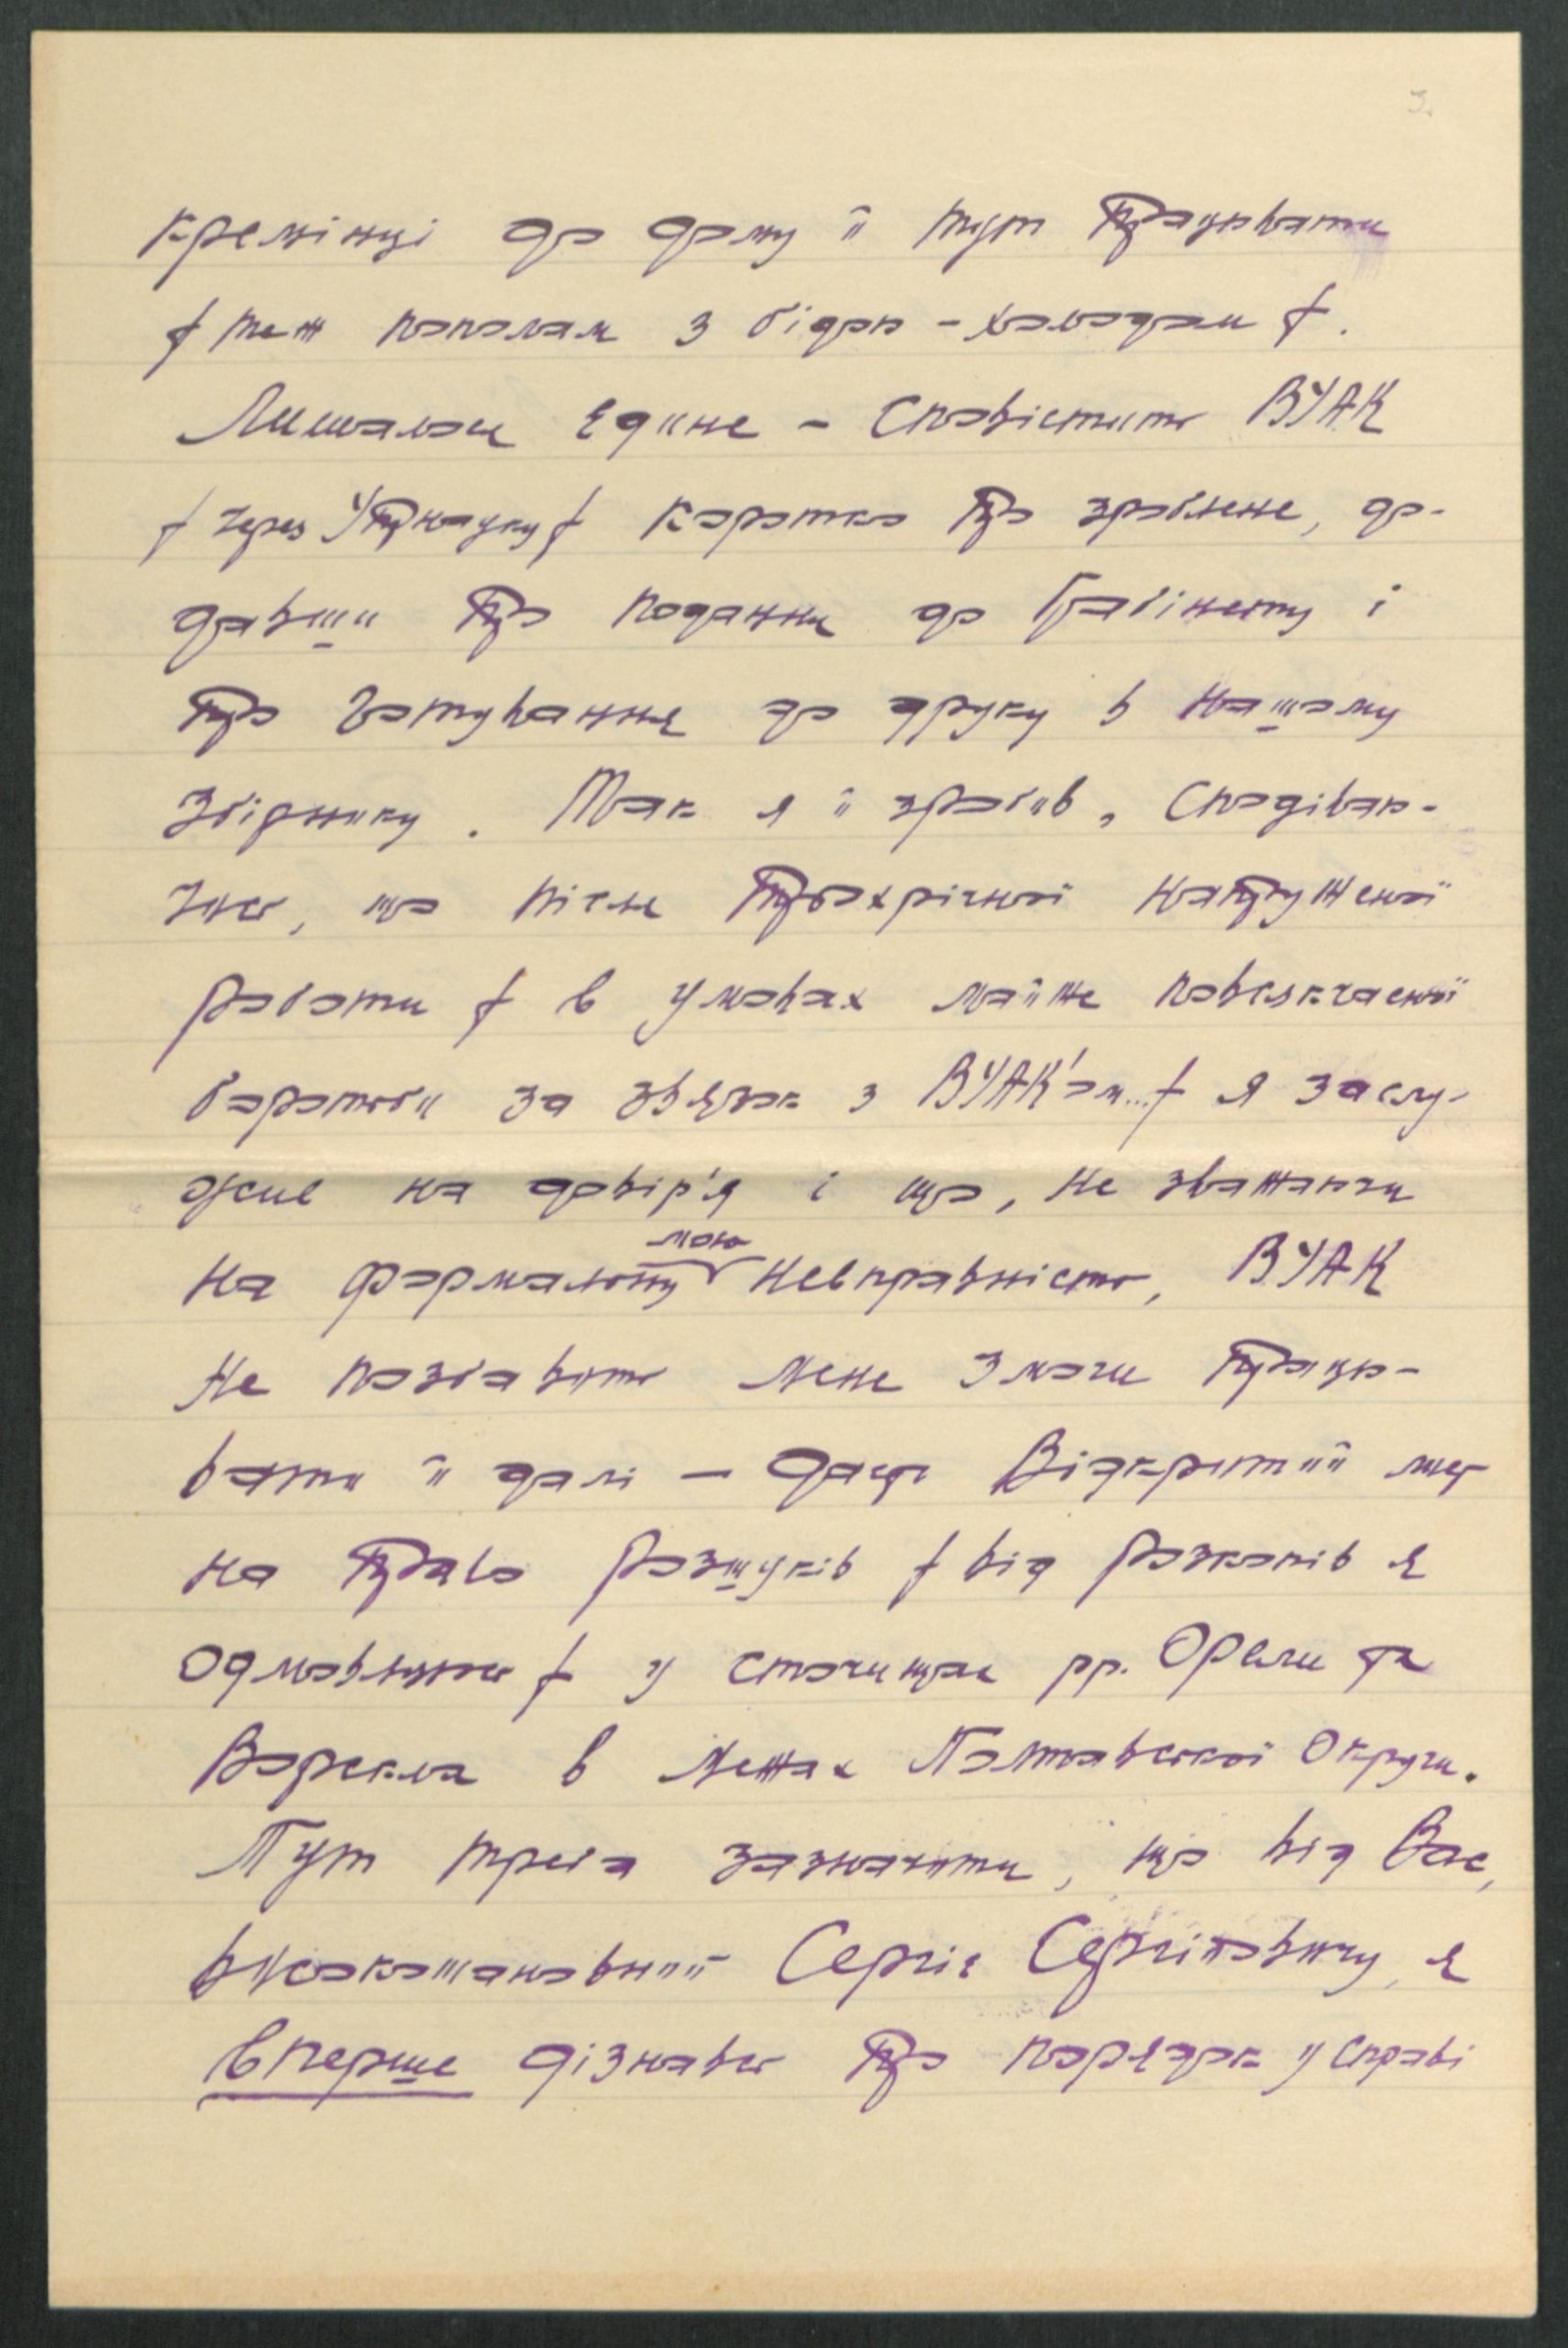 3.
кремінці до дому й тут працювати
/ теж пополам з бідою-холодом /.
Лишалось єдине - сповістить ВУАК
/ через Упрнауку / коротко про зроблене, до-
давши про подання до Кабінету і
про готування до друку в нашому
Збірнику. Так я й зробив, сподіваю-
чись, що після трьохрічної напруженої
роботи / в умовах майже повсякчасної
боротьби за зв'язок з ВУАК'ом.../ я заслу-
жив на довір'я і що, не зважаючи
на формальну мою невправність, ВУАК
не позбавить мене змоги працю-
вати й далі - дасть Відкритий лист
на право розшуків / від розкопів я
одмовляюсь / у сточищах рр. Орели та
Ворскла в межах Полтавської Округи.
Тут треба зазначити, що від Вас,
високошановний Сергіє Сергійовичу, я
вперше дізнавсь про порядок у справі